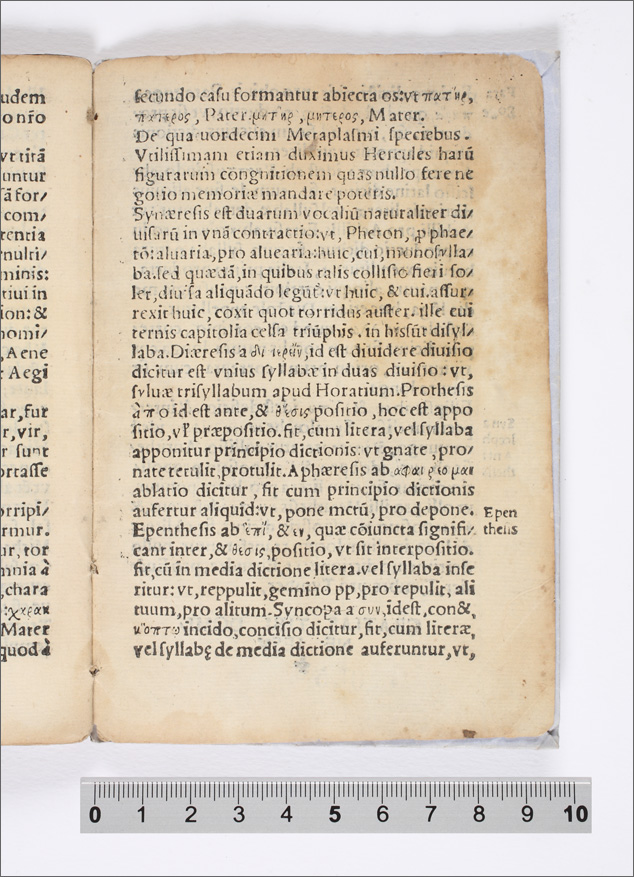 udem
onño
vt titã
untur
ã for/
com/
tentia
multi/
minis:
tiui in
ion: &
nomi/
, Aene
: Aegi
ar, fur
r, vir,
r sunt
ortasse
orripi/
rmur.
ur, tor
mnia à
, chara
Mater
quod à
secundo casu formantur abiecta os: vt πατηρ,
πατερος, Pater. μητηρ, μητερος, Mater.
De qua uordecim Metaplasmi speciebus.
Vtilissimam etiam duximus Hercules harũ
figurarum congnitionem quas nullo fere ne
gotio memoriæ mandare poteris.
Synæresis est duarum vocaliũ naturaliter di/
uisarũ in vnã contractio: vt, Pheton, ꝓ phae/
tõ: aluaria, pro aluearia: huic, cui, monosylla/
ba. sed quædã, in quibus talis collisio fieri so/
let, diuisa aliquãdo legũt: vt huic, & cui. assur/
rexit huic, coxit quot torridus auster. ille cui
ternis capitolia celsa triũphis. in his sũt disyl/
laba. Diæresis a id est diuidere diuisio
dicitur est vnius syllabæ in duas diuisio: vt,
syluæ trisyllabum apud Horatium. Prothesis
ἀπο id est ante, & θεσις positio, hoc est appo
sitio, vl' præpositio. fit, cum litera, vel syllaba
apponitur principio dictionis: vt gnate, pro/
nate tetulit, protulit. Aphæresis ab αφαιρεομαι
ablatio dicitur, fit cum principio dictionis
aufertur aliquid: vt, pone mctũ, pro depone.
Epenthesis ab ἐπὶ, & εν, quæ cõiuncta signifi/
cant inter, & θεσις, positio, vt sit interpositio.
fit, cũ in media dictione litera. vel syllaba inse
ritur: vt, reppulit, gemino pp, pro repulit, ali
tuum, pro alitum. Syncopa a συν, idest, con &,
κοπτω incido, concisio dicitur, fit, cum literæ,
vel syllabę de media dictione auferuntur, vt,
Epen
thesis
0 1 2 3 4 5 6 7 8 9 10